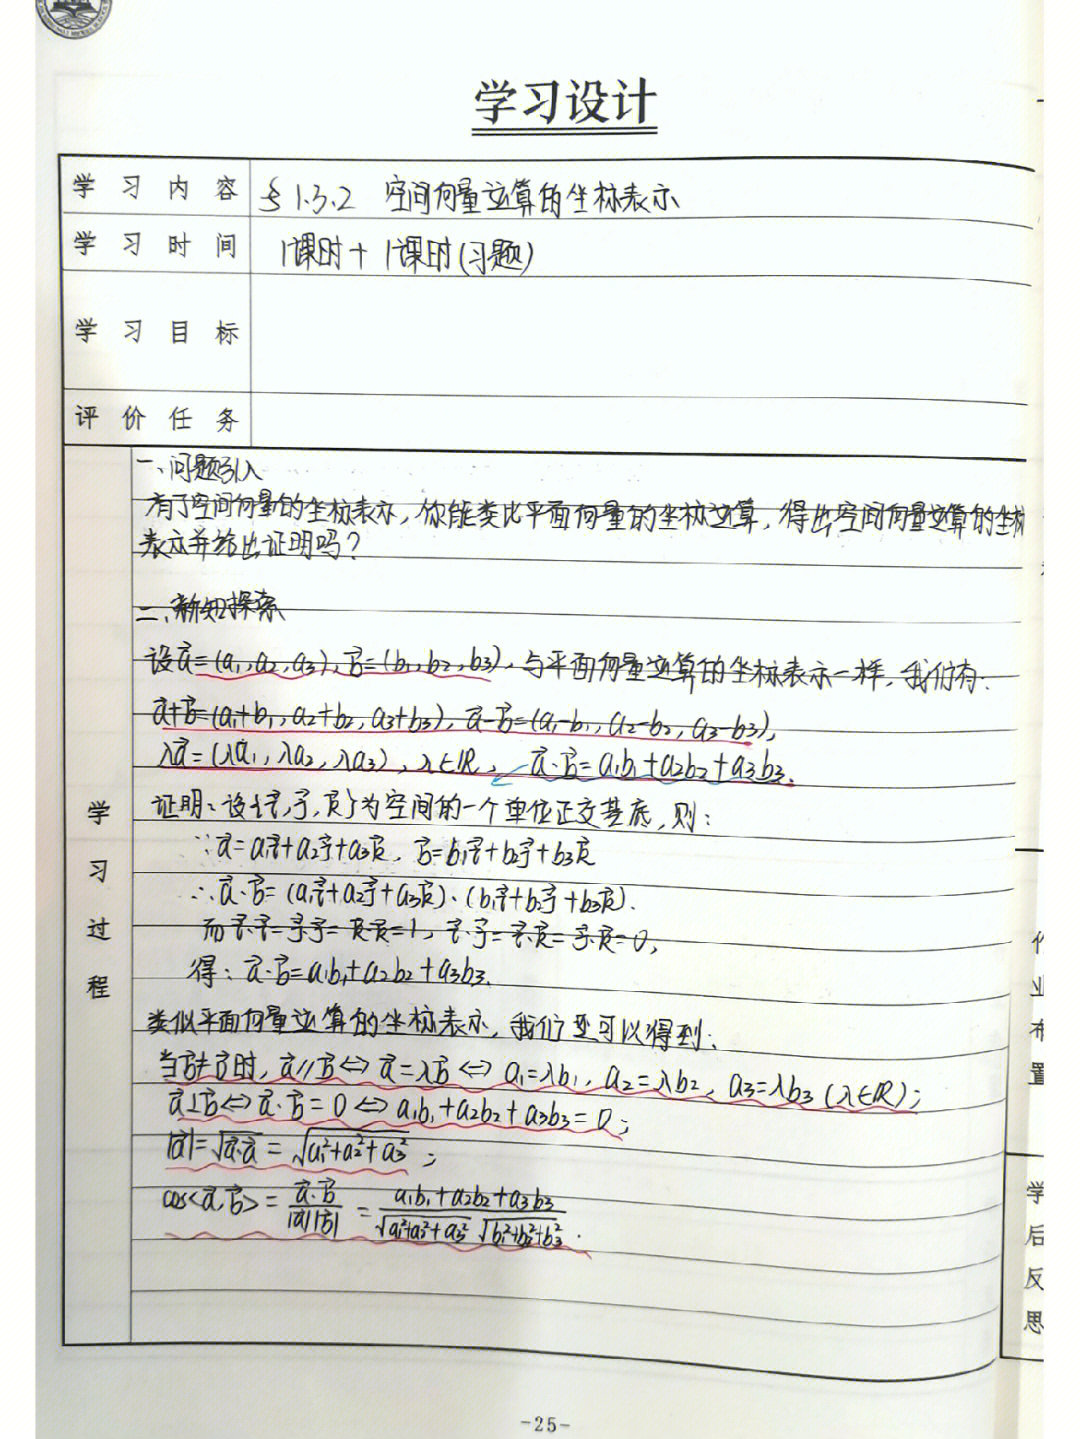 学习设计
学习内容 §1.3.2 空间向量运算的坐标表示
学习时间 1课时+1课时(习题)
学习目标
评价任务
学习过程
一、问题引入
有了空间向量的坐标表示,你能类比平面向量的坐标运算,得出空间向量运算的坐标
表示并给出证明吗?
二、新知探索
设a⃗=(a₁,a₂,a₃),b⃗=(b₁,b₂,b₃),与平面向量运算的坐标表示一样,我们有:
a⃗+b⃗=(a₁+b₁,a₂+b₂,a₃+b₃),a⃗-b⃗=(a₁-b₁,a₂-b₂,a₃-b₃),
λa⃗=(λa₁,λa₂,λa₃),λ∈R,a⃗·b⃗=a₁b₁+a₂b₂+a₃b₃.
证明:设{i⃗,j⃗,k⃗}为空间的一个单位正交基底,则:
∵a⃗=a₁i⃗+a₂j⃗+a₃k⃗,b⃗=b₁i⃗+b₂j⃗+b₃k⃗
∴a⃗·b⃗=(a₁i⃗+a₂j⃗+a₃k⃗)·(b₁i⃗+b₂j⃗+b₃k⃗).
而i⃗·i⃗=j⃗·j⃗=k⃗·k⃗=1,i⃗·j⃗=i⃗·k⃗=j⃗·k⃗=0,
得:a⃗·b⃗=a₁b₁+a₂b₂+a₃b₃.
类似平面向量运算的坐标表示,我们还可以得到:
当b⃗≠0⃗时,a⃗∥b⃗⇔a⃗=λb⃗⇔a₁=λb₁,a₂=λb₂,a₃=λb₃(λ∈R);
a⃗⊥b⃗⇔a⃗·b⃗=0⇔a₁b₁+a₂b₂+a₃b₃=0;
|a⃗|=√(a⃗·a⃗)=√(a₁²+a₂²+a₃²);
cos<a⃗,b⃗>=(a⃗·b⃗)/(|a⃗||b⃗|)=(a₁b₁+a₂b₂+a₃b₃)/(√(a₁²+a₂²+a₃²)√(b₁²+b₂²+b₃²)).
作业布置
学后反思
-25-